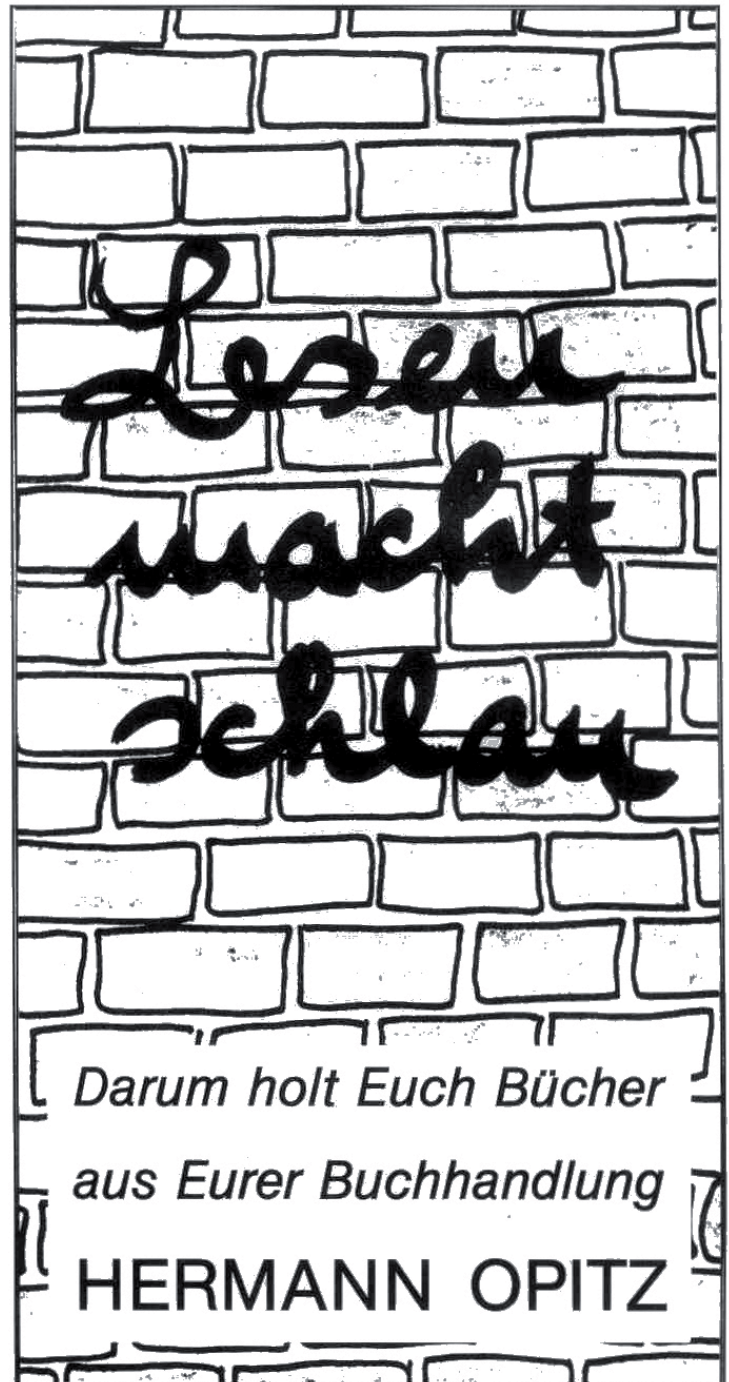 Lesen
macht
schlau
Darum holt Euch Bücher
aus Eurer Buchhandlung
HERMANN OPITZ